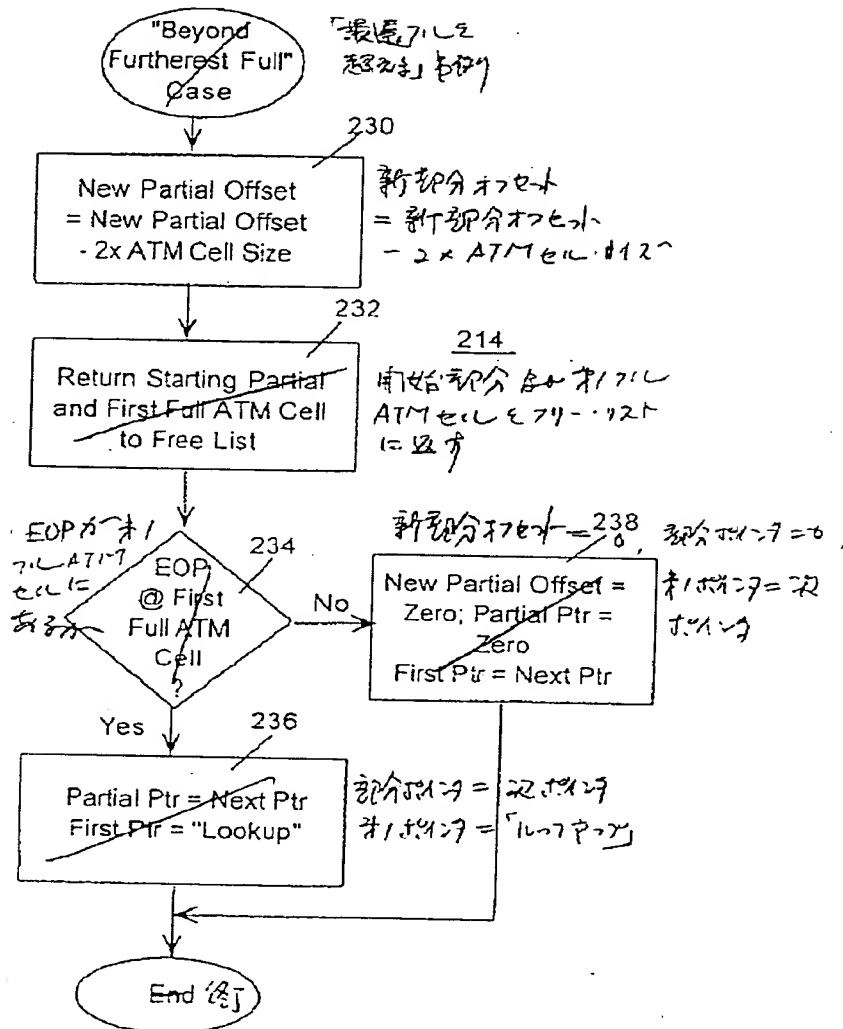 "Beyond
Furtherest Full"
Case
「最遠フルを
超える」場合
230
New Partial Offset
= New Partial Offset
- 2x ATM Cell Size
新部分オフセット
= 新部分オフセット
- 2 x ATMセル・サイズ
232
214
Return Starting Partial
and First Full ATM Cell
to Free List
開始部分および第1フル
ATMセルをフリー・リスト
に返す
EOPが第1
フルATM
セルに
あるか
234
EOP
@ First
Full ATM
Cell
?
No
Yes
新部分オフセット = 0, 部分ポインタ = 0,
第1ポインタ = 次
ポインタ
238
New Partial Offset =
Zero; Partial Ptr =
Zero
First Ptr = Next Ptr
236
Partial Ptr = Next Ptr
First Ptr = "Lookup"
部分ポインタ = 次ポインタ
第1ポインタ = 「ルックアップ」
End 終了